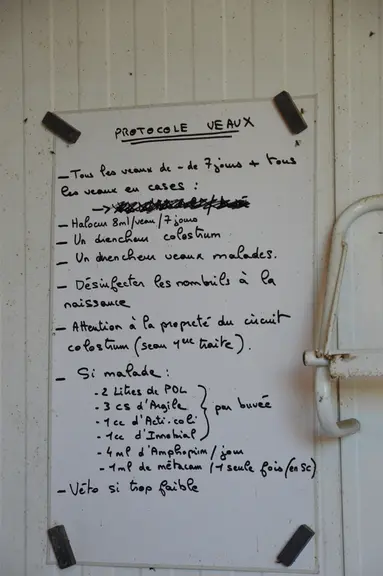 PROTOCOLE VEAUX
- Tous les veaux de - de 7 jours + tous
les veaux en cases :
→
- Halocur 8ml/veau/7 jours
- Un drencheur colostrum
- Un drencheur veaux malades.
- Désinfecter les nombrils à la
naissance
- Attention à la propreté du circuit
colostrum (seau 1ère traite).
- Si malade :
- 2 Litres de POL
- 3 cs d'Argile
- 1cc d'Acti.coli
- 1cc d'Imobial
} par buvée
- 4 ml d'Amphoprim / jour
- 1ml de métacam / 1 seule fois (en SC)
- Véto si trop faible